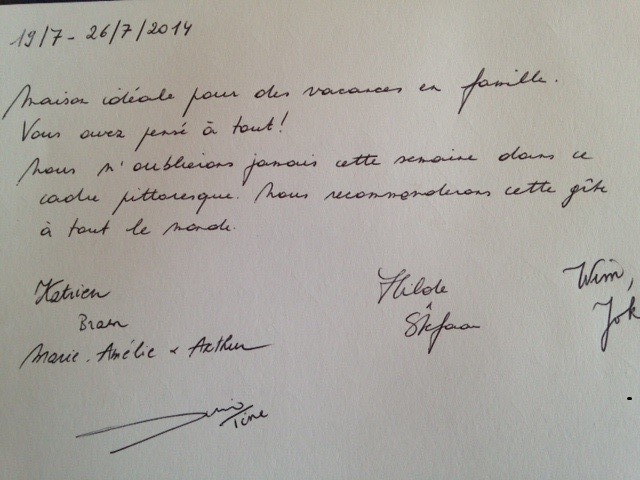 19/7 - 26/7/2014
Maison idéale pour des vacances en famille.
Vous avez pensé à tout!
Nous n'oublierons jamais cette semaine dans ce
cadre pittoresque. Nous recommanderons cette gîte
à tout le monde.
Katrien
Hilde
Wim,
Bram
&
Stefaan
Jok
Marie-Amélie & Arthur
Tine